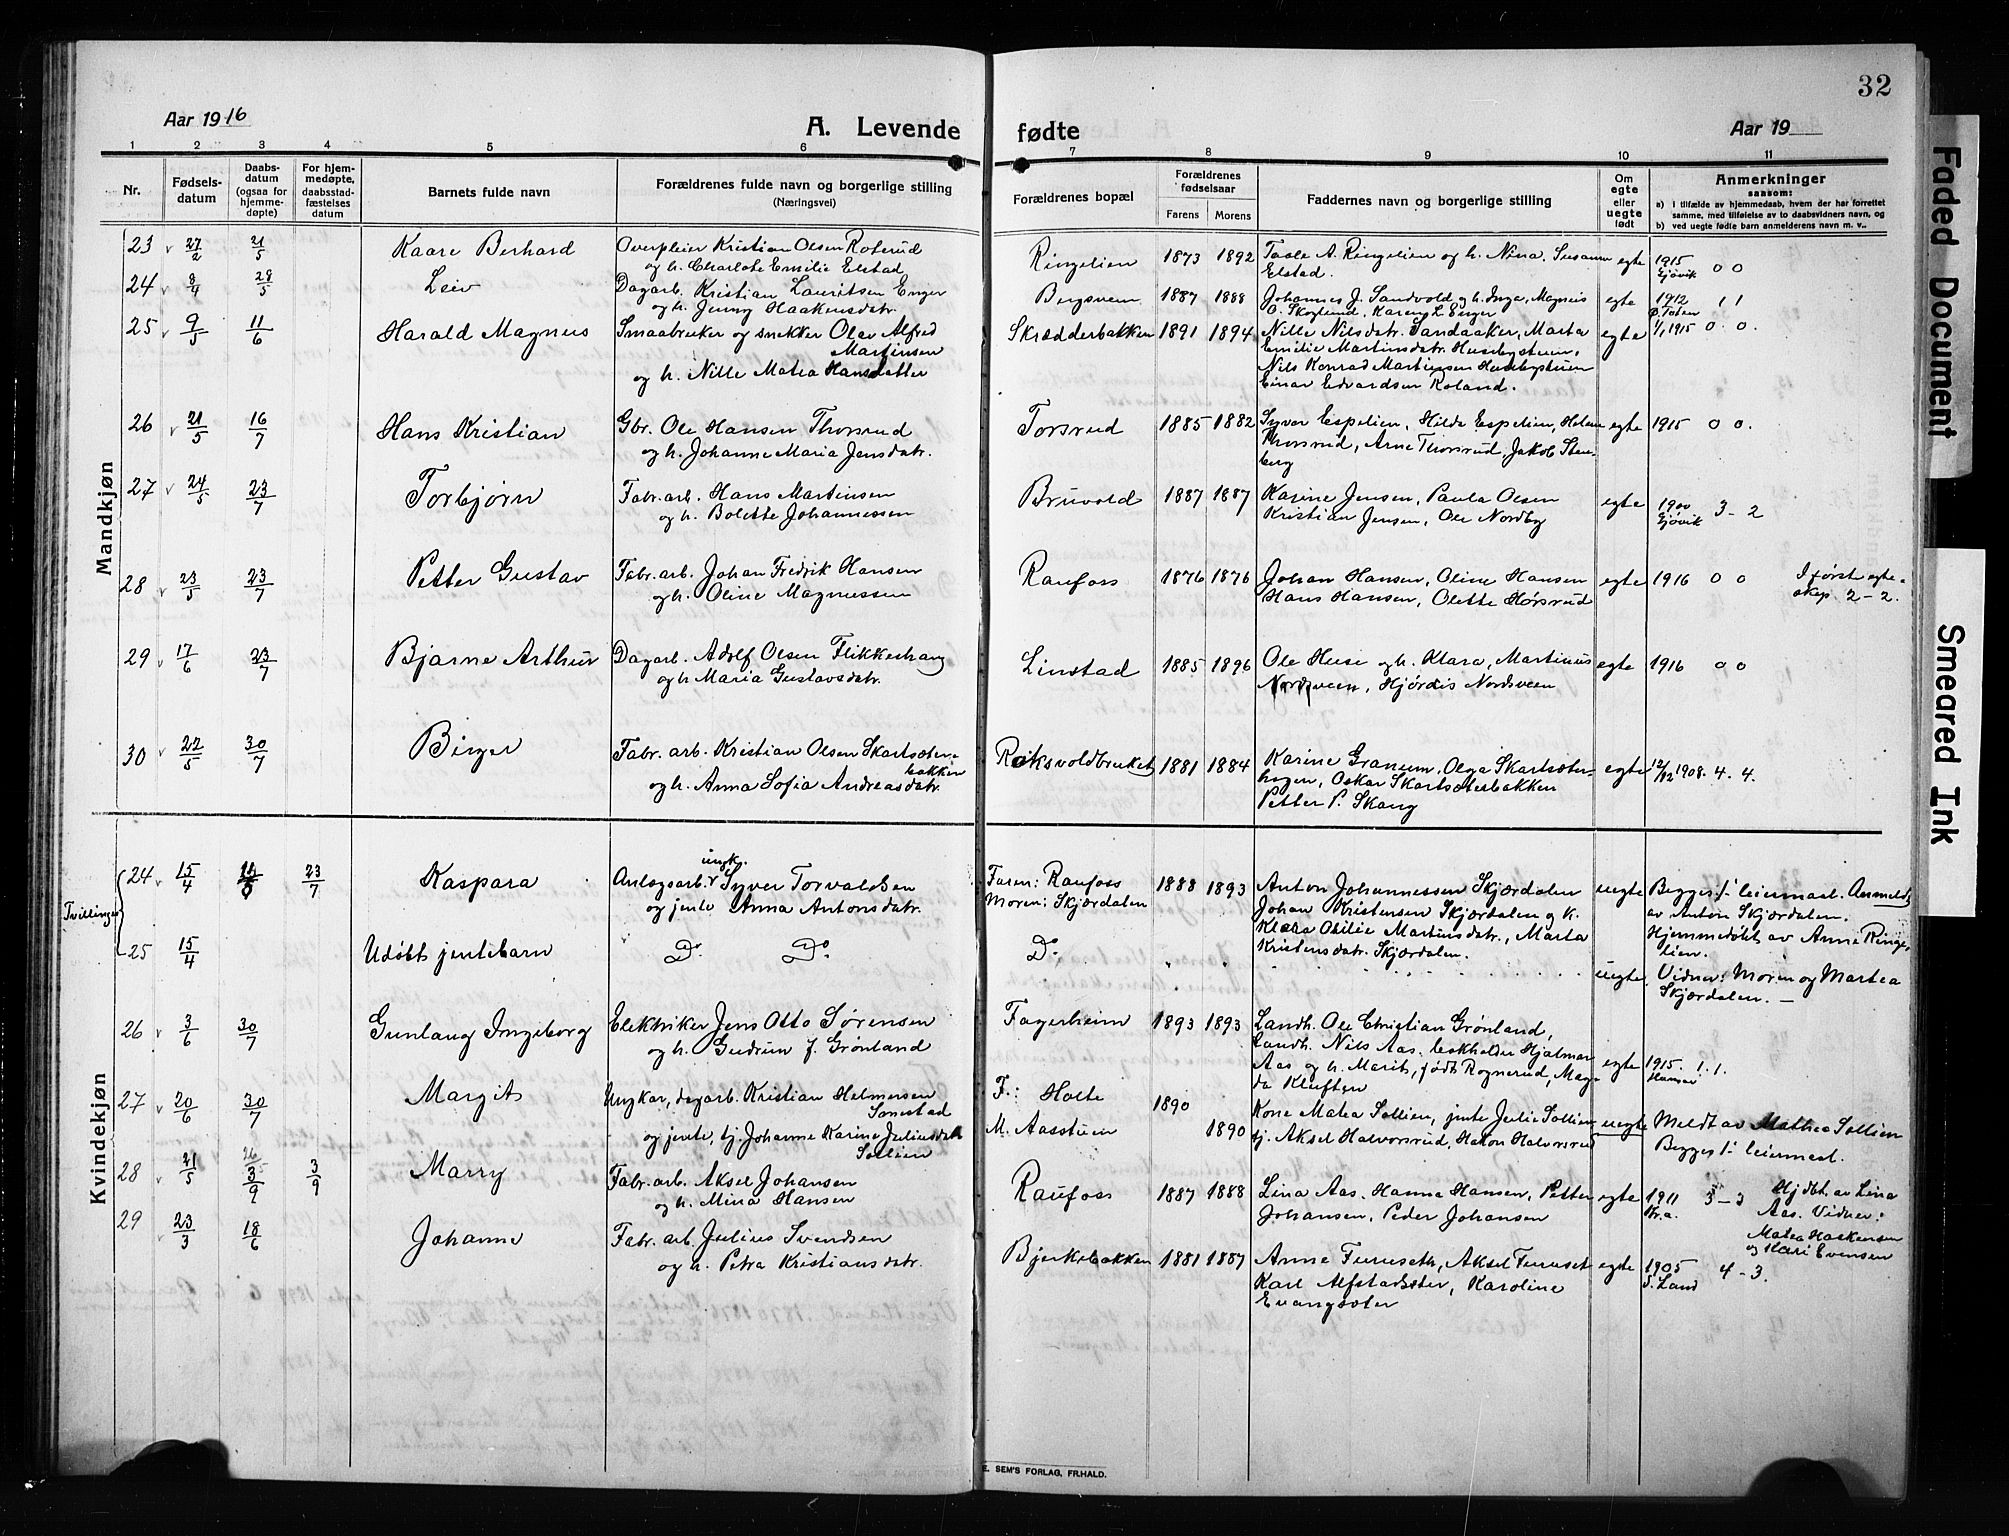 32
Aar 1916
A. Levende fødte
Aar 19
1 2 3 4 5 6 7 8 9 10 11
Nr.
Fødsels-
datum
Daabs-
datum
(ogsaa for
hjemme-
døpte)
For hjem-
medøpte,
daabsstad-
fæstelses
datum
Barnets fulde navn
Forældrenes fulde navn og borgerlige stilling
(Næringsvei)
Forældrenes bopæl
Forældrenes
fødselsaar
Farens Morens
Faddernes navn og borgerlige stilling
Om
egte
eller
uegte
født
Anmerkninger
saasom:
a) i tilfælde av hjemmedaab, hvem der har forrettet
samme, med tilføielse av to daabsvidners navn, og
b) ved uegte fødte barn anmelderens navn m. v..
Mandkjøn
23 27/2 21/5 Kaare Berhard Overpleier Kristian Olsen Roterud
og h. Charlote Emilie Elstad
Ringelien 1873 1892 A. Ringelien og h. Nina. Susanna
Elstad. egte 1915
Gjøvik 0 0
24 8/4 28/5 Leiv Dagarb. Kristian Lauritsen Enger
og h. Jenny Haakensdatr.
Bergsveen 1887 1888 Johannes J. Sandvold og h. Inga, Magnus
O. Skoglund, Karen L. Enger egte 1912
Ø. Toten 1 1
25 9/5 11/6 Harald Magnus Smaabruker og snekker Olav Alfred
Martinsen
og h. Nille Matea Hansdatter
Skrædderbakken 1891 1894 Nille Nilsdatr. Sandaaker, Marta
Emilie Martinsdatr. Husebystuen,
Nils Konrad Martinsen Husebystuen
Einar Edvardsen Roland. egte 1/1 1915 0. 0.
26 21/5 16/7 Hans Kristian Gbr. Ole Hansen Thorsrud
og h. Johanne Maria Jensdatr.
Torsrud 1885 1882 Syver Espelien, Hilda Espelien, Helene
Thorsrud, Arne Thorsrud, Jakob Sten-
berg egte 1915 0 0.
27 24/5 23/7 Torbjørn Fabr. arb. Hans Martinsen
og h. Bolette Johannessen
Bruvold 1887 1887 Karine Jensen, Paula Olsen
Kristian Jensen, Ole Nordby egte 1900
Gjøvik 3 - 2
28 23/5 23/7 Petter Gustav Fabr. arb. Johan Fredrik Hansen
og h. Oline Magnussen
Raufoss 1876 1876 Johan Hansen, Oline Hansen
Hans Hansen, Olette Hørsrud egte 1916 0 0 I første egte-
skap 2 - 2.
29 17/6 23/7 Bjarne Arthur Dagarb. Adolf Olsen Flikkeshaug
og h Maria Gustavsdatr.
Linstad 1885 1896 Ole Huse og h. Klara, Martinus
Nordsveen, Hjørdis Nordsveen egte 1916 0 0
30 22/5 30/7 Birger Fabr. arb. Kristian Olsen Skartsæter-
bakken
og h. Anna Sofia Andreasdatr.
Roksvoldbruket 1881 1884 Karine Granum, Olga Skartsæter-
hagen, Oskar Skartsæterbakken
Petter P. Skaug egte 12/12 1908. 4. 4.
Kvindekjøn
Tvillinger
24 15/4 23/7 Kaspara Anlægsarb. ungk. Syver Torvaldsen
og jente Anna Antonsdatr.
Faren: Raufoss
Moren: Skjærdalen 1888 1893 Anton Johannessen Skjærdalen
Johan Kristensen Skjærdalen og h.
Klara Otilie Martinsdatr., Marta
Kristensdatr. Skjærdalen. uegte Begges 1' leiermaal. Anmeldt
av Anton Skjærdalen.
Hjemmedøbt av Anne Ringe-
lien.
Vidner: Moren og Martea
Skjærdalen. -
25 15/4 Udøbt jentebarn Do Do Do " " uegte
26 3/6 30/7 Gunlaug Ingeborg Elektriker Jens Otto Sørensen
og h. Gudrun J. Grønland
Fagerheim 1893 1893 Landh. Ole Christian Grønland,
Landh. Nils Aas. bokholder Hjalmar
Aas og h. Marit, født Rognerud, Mag-
da Kluften egte 1915. 1. 1.
Hamar
27 20/6 30/7 Margit Ungkar, dagarb. Kristian Helmersen
Sonestad
og jente, tj. Johanne Karine Juliusdatr
Sollien
F.: Holte 1890
M. Aasstuen 1890 Kone Matea Sollien, jente Julie Sollien
tj. Aksel Halvorsrud, Hakon Halvorsrud uegte Meldt av Mathea Sollien
Begges 1' leiermaal.
28 21/5 3/9 3/9 Marry Fabr. arb. Aksel Johansen
og h. Mina Hansen
Raufoss 1887 1888 Lina Aas. Hanna Hansen, Petter
Johansen, Peder Johansen egte 1911
Kr.a. 3 - 3 Hj.dbt. av Lina
Aas. Vidner:
Matea Haakensen
og Kari Evensen
29 23/3 18/6 Johanne Fabr. arb. Julius Svendsen
og h. Petra Kristiansdatr.
Bjerkebakken 1881 1887 Anne Furuseth, Aksel Furuset
Karl Alfstadsæter, Karoline
Evangsæter egte 1905
S. Land 4 - 3.
E. SEM'S FORLAG, FR.HALD.
Faded Document
Smeared Ink